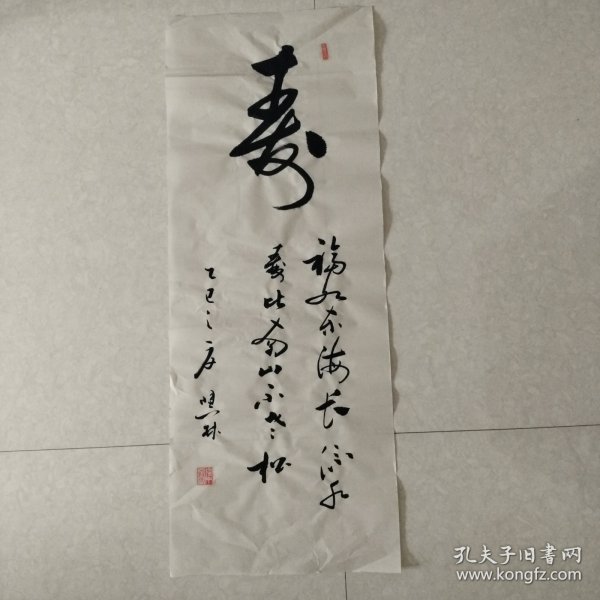 寿
福如东海长流水
寿比南山不老松
乙巳之夏
孔夫子旧书网
www.kongfz.com